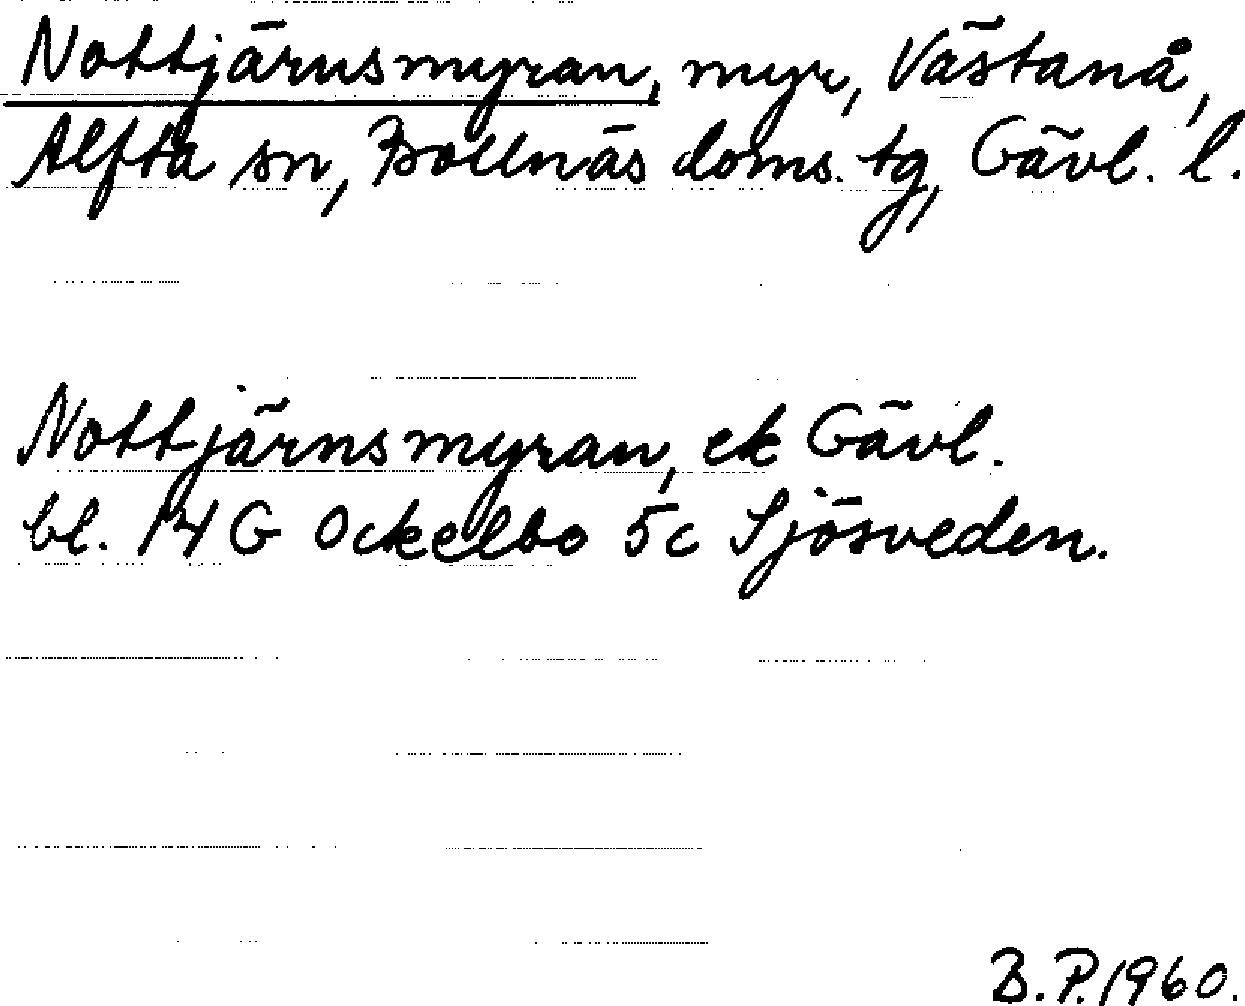 Nottjärnsmyran, myr, Västanå,
Alfta sn, Bollnäs doms. tg, Gävl. l.
Nottjärnsmyran, ek Gävl.
bl. 14 G Ockelbo 5c Sjösveden.
B.P. 1960.